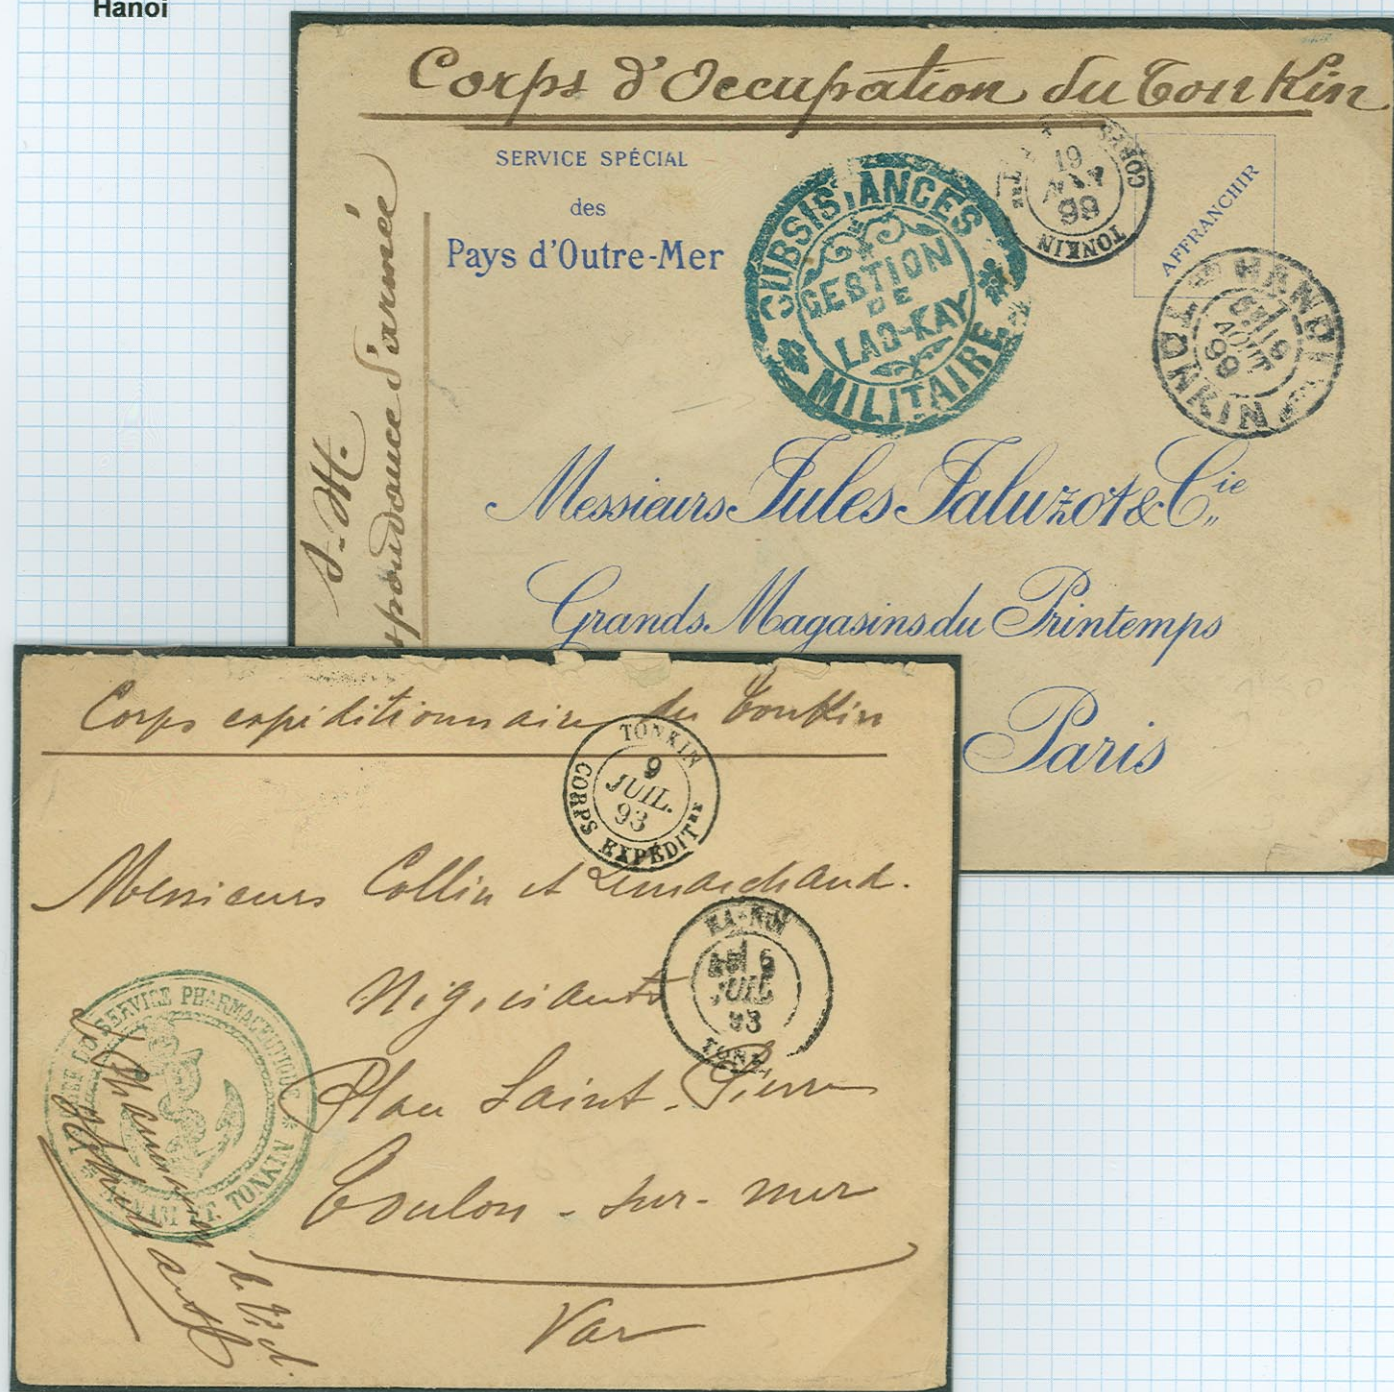 Hanoi
Corps d'Occupation du Tonkin
SERVICE SPÉCIAL
des
Pays d'Outre-Mer
S. M.
d'armée
SUBSISTANCES
MILITAIRE
GESTION
DE
LAO-KAY
CORPS
TONKIN
19
99
AFFRANCHIR
HANOI
TONKIN
19
AOUT
99
Messieurs Jules Jaluzot & Cie
Grands Magasins du Printemps
Paris
Corps expéditionnaire du Tonkin
TONKIN
9
JUIL.
93
CORPS EXPÉDITRE
Messieurs Collin et Lemarchand.
HA-NOI
JUIL
93
TONK
Négociants
Place Saint-Pierre
Toulon-sur-mer
Var
CHEF DU SERVICE PHARMACEUTIQUE
TONKIN